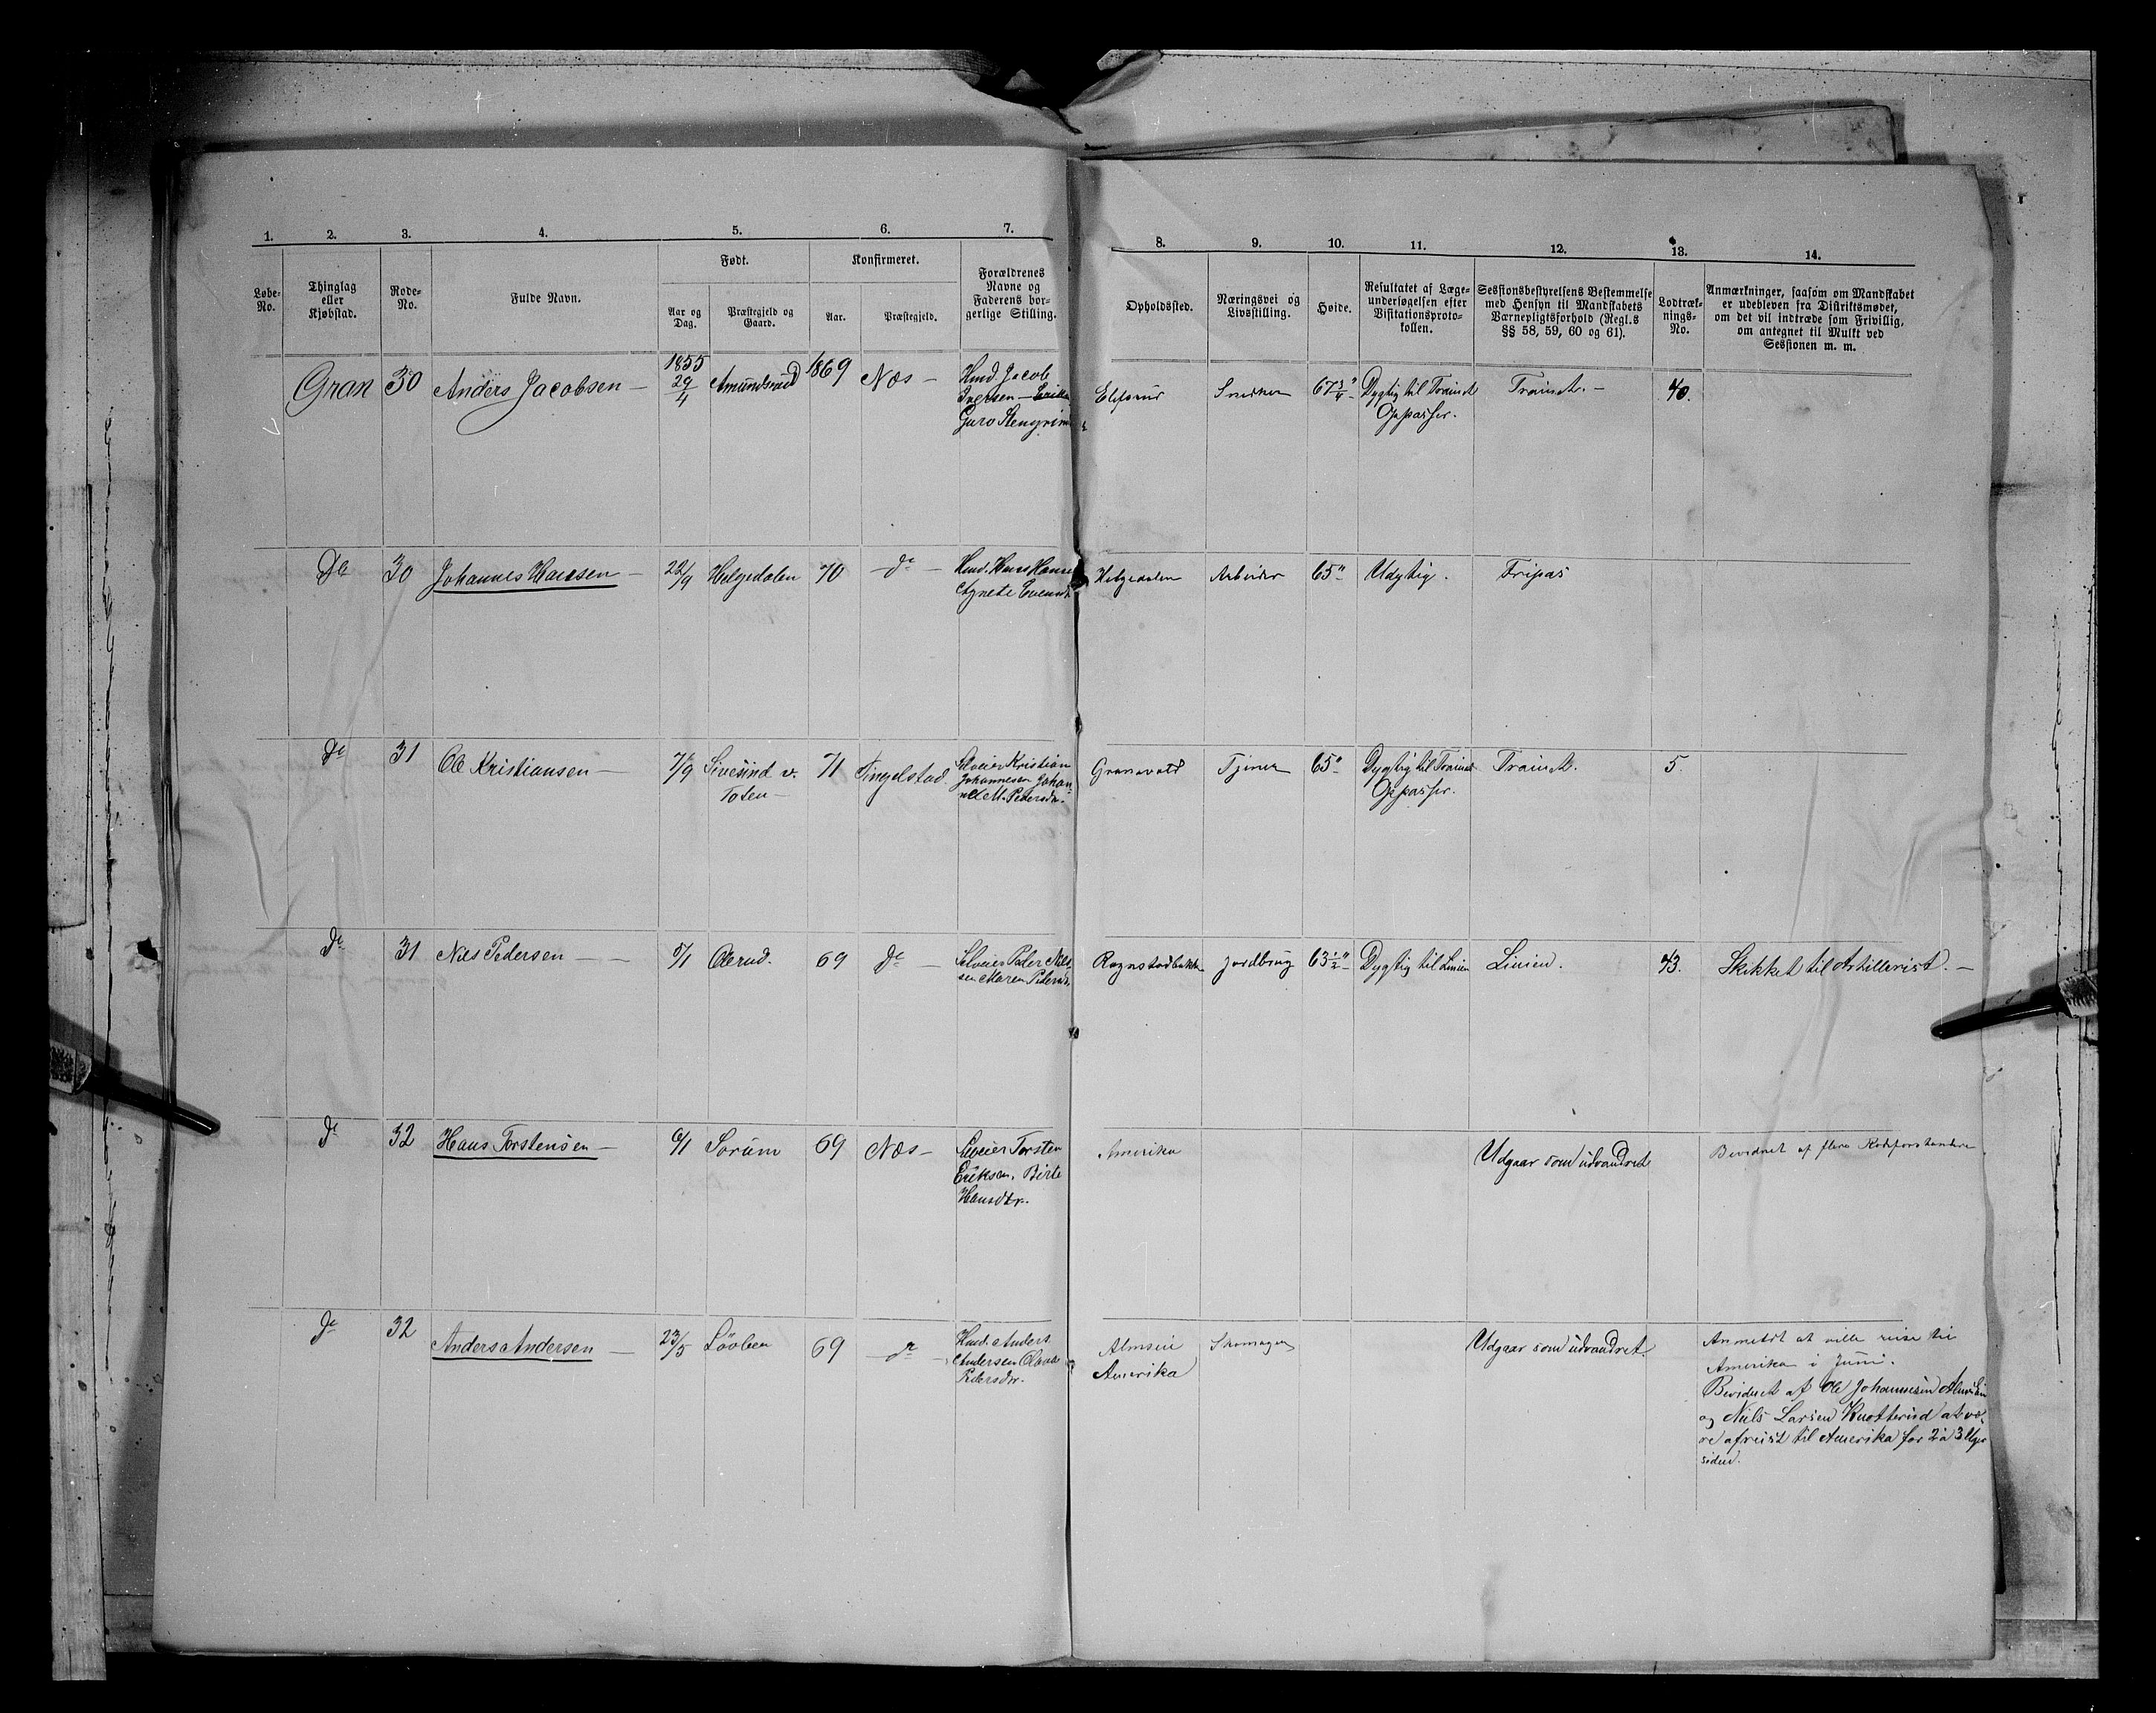 1. 2. 3. 4. 5. 6. 7. 8. 9. 10. 11. 12. 13. 14.
Løbe-No.
Thinglag eller Kjøbstad.
Rode-No.
Fulde Navn.
Født.
Aar og Dag.
Præstegjeld og Gaard.
Konfirmeret.
Aar.
Præstegjeld.
Forældrenes Navne og Faderens borgerlige Stilling.
Opholdssted.
Næringsvei og Livsstilling.
Høide.
Resultatet af Lægeundersøgelsen efter Visitationsprotokollen.
Sessionsbestyrelsens Bestemmelse med Hensyn til Mandskabets Værnepligtsforhold (Regl.s §§ 58, 59, 60 og 61).
Lodtræknings-No.
Anmærkninger, saasom om Mandskabet er udebleven fra Distriktsmødet, om det vil indtræde som Frivillig, om antegnet til Mulkt ved Sessionen m. m.
Gran 30 Anders Jacobsen – 1855 29/4 Amundsrud 1869 Næs –
Hmd. Jacob
Iversen –
Guro Stengrim
Snedker 67 3/4" Dygtig til Trainet Trainet. – 40.
Oppasser.
Do 30 Johannes Hansen – 22/9 Helgedalen 70 – do – Hmd. Hans Hans
Agnete
Helgedalen Arbeider 65" Udygtig. Fripas
Do 31 Ole Kristiansen – 7/9 Sivesind v. 71 Tingelstad
Toten –
Selveier Kristian
Johannesen Johan-
ne M. Petersdr.
Granavold Tjener 65" Dygtig til Trainet Trainet. 5
Oppasser.
Do 31 Nils Pedersen – – 5/1 Olerud. 69 do –
Selveier Peder Nils-
sen Maren Pedersdr.
Rognstadbakken Jordbrug 63 1/2" Dygtig til Linien Linien. 43. Skikket til Artillerist. –
Do 32 Hans Torstensen – 6/1 Sorum 69 Næs –
Torsten
Eriksen. Birte
Hansdtr.
Amerika Udgaar som udvandret Bevidnet af flere Rodeforstandere
Do 32 Anders Andersen – 23/5 69 – do –
Hmd. Anders
Andersen
Pedersdr.
Skomager
Amerika
Udgaar som udvandret.
Anmeldt at ville reise til
Amerika i Juni.
Bevidnet af Ole Johannesen
og Niels Larsen Knotterud at væ-
re afreist til Amerika for 2 à 3 Uger
siden.